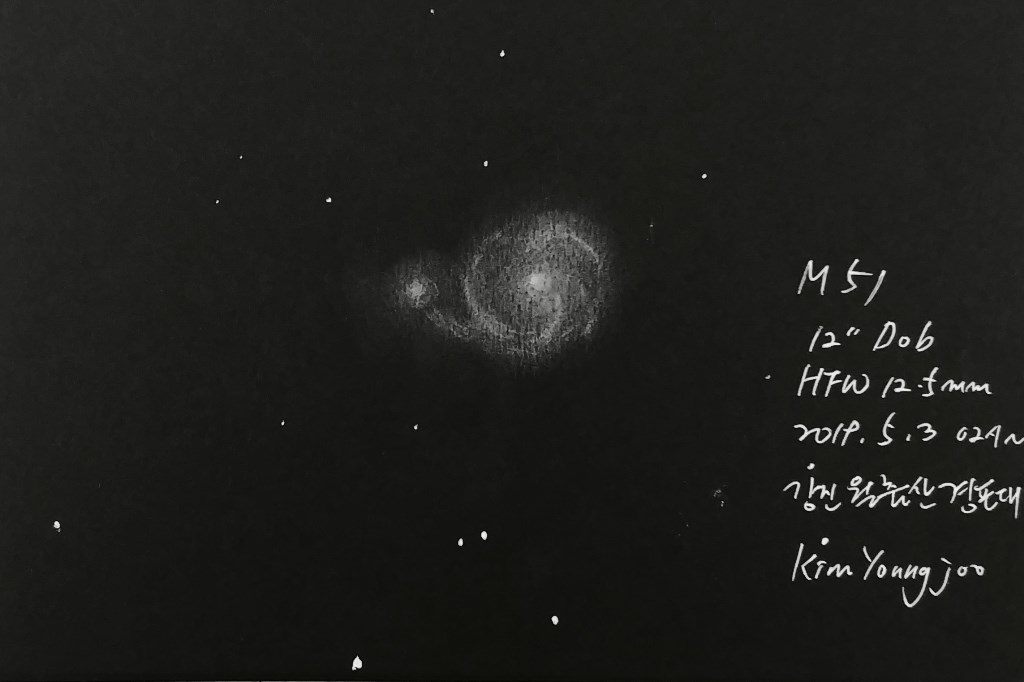 M 51
12" Dob
HFW 12.5mm
2019. 5. 3 02AM
강진 월출산 경포대
Kim Young joo